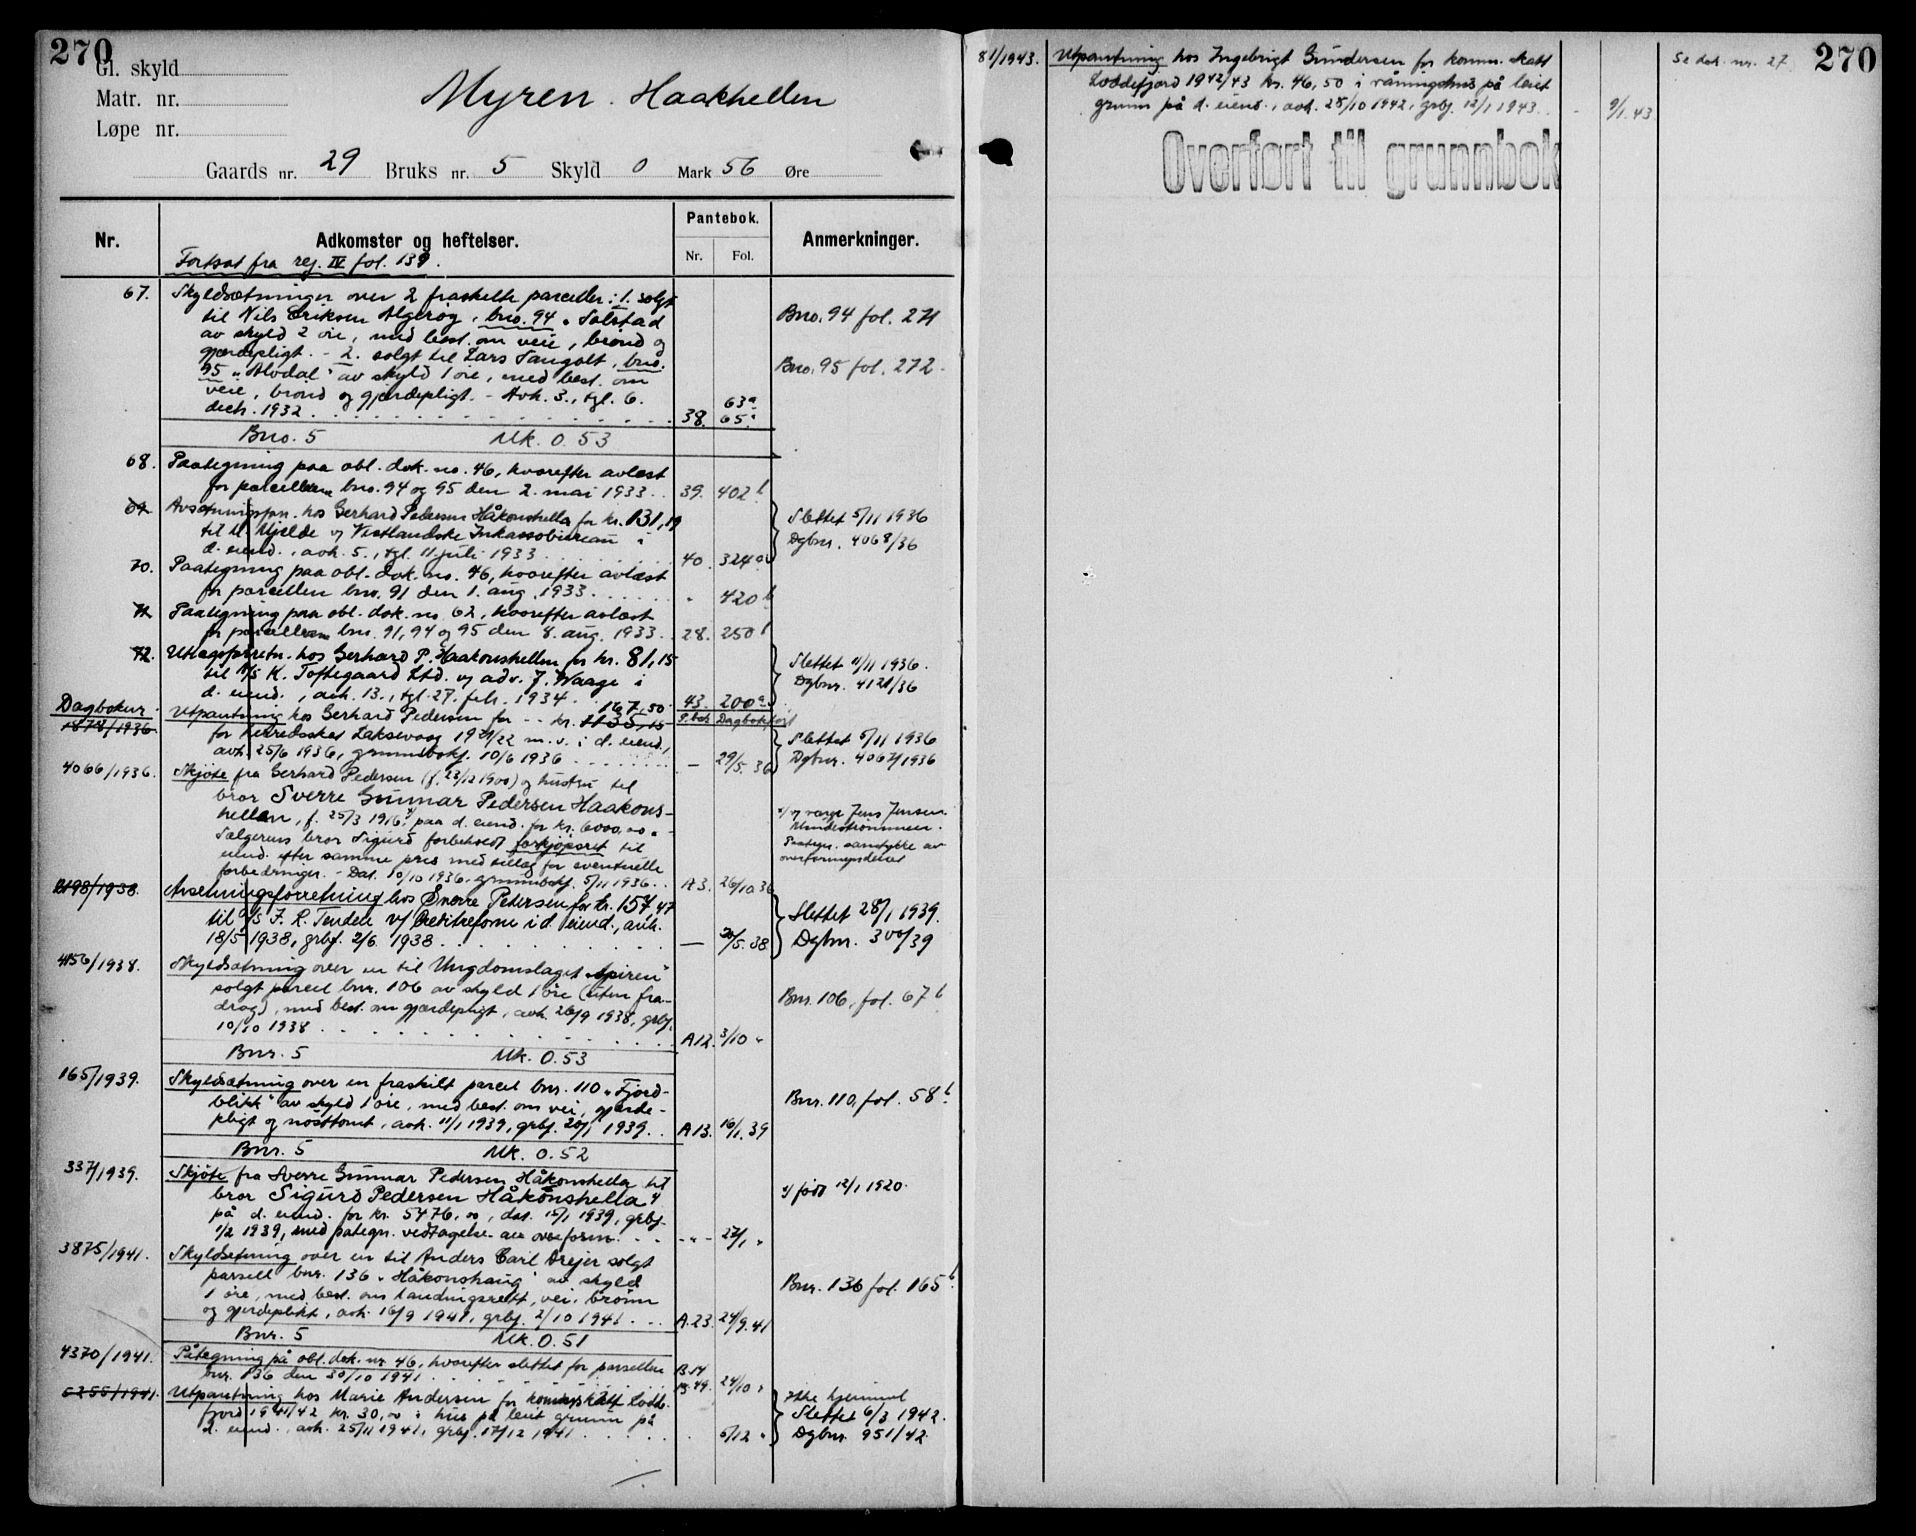 270
Gl. skyld
Matr. nr.
Løpe nr.
Myren. Haakhellen
Gaards nr. 29 Bruks nr. 5 Skyld 0 Mark 56 Øre
Nr.
Adkomster og heftelser.
Pantebok.
Nr. Fol.
Anmerkninger.
Fortsat fra reg. IV fol. 139.
67. Skyldsætninger over 2 fraskilte parceller: 1. solgt
til Nils Eriksen Algerøy, bno. 94 "Solstad
av skyld 2 øie, med best. om veie, brønd og
gjerdepligt. - 2. solgt til Lars Tangolt, bno.
95 "Alvdal" av skyld 1 øie, med best. om
veie, brønd og gjerdepligt. - Avh. 3., tgl. 6.
decb. 1932 38. 63a 65.
Bno. 94 fol. 271
Bno. 95 fol. 272
Bno. 5 Mk. 0.53
68. Paategning paa obl. dok. no. 46, hvorefter avlæst
for parcellerne bno. 94 og 95 den 2. mai 1933 39. 402b
69. Avsetningsforr. hos Gerhard Pedersen Håkonshella for kr. 131,19
til Mjelde v/ Vestlandske Inkassobureau i
d. eiend., avh. 5., tgl. 11. juli 1933 40. 324a
Slettet 5/11 1936
Dgbnr. 4068/36
70. Paategning paa obl. dok. no. 46, hvorefter avlæst
for parcellen bno. 91 den 1. aug. 1933 " 420b
71. Paategning paa obl. dok. no 62, hvorefter avlæst
for parcellerne bno. 91, 94 og 95 den 8. aug. 1933 28. 250b
72. Utlægsforretn. hos Gerhard P. Haakonshellen for kr. 81,15
til A/S K. Toftegaard Ltd. v/ adv. J. Waage i
d. eiend., avh. 13., tgl. 27. feb. 1934 43. 200a
Slettet 11/11 1936.
Dgbnr. 4121/36
Dagboknr.
P.bok Dagbokført
1878/1936 Utpantning hos Gerhard Pedersen for kr. 1135,15 167,50
for herredsskat Laksevaag 1921/22 m.v. i d. eiend.,
avh. 25/6 1936, grunnbokf. 10/6 1936 — 29/5. 36
Slettet 5/11 1936
Dgbnr. 4067/1936
4066/1936. Skjøte fra Gerhard Pedersen (f. 23/12 1900) og hustru til
bror Sverre Gunnar Pedersen Haakons-
hellen, f. 25/3 1916, paa d. eiend. for kr. 6000,00.
Sælgerens bror Sigurd forbeholdt forkjøpsret til
eiend. efter samme pris med tillæg for eventuelle
forbedringer. - Dat. 10/10 1936. grunnbokf. 5/11 1936 A3. 26/10 36
v/ værge Jens Jensen
Paategn. samtykke av
overformynderiet
2198/1938. Avsetningsforretning hos Sverre Petersen for kr. 157,47
til A/S J. R. Tenden v/ Creditreform i d. eiend., avh.
18/5 1938, grbf. 2/6 1938 — 30/5. 38.
Slettet 28/1 1939.
Dgbnr. 300/39
4156/1938. Skyldsætning over en til Ungdomslaget "Spiren"
solgt parcel bnr. 106 av skyld 1 øre (uten fra-
drag), med best. om gjærdepligt, avh. 26/9 1938, grbf.
10/10 1938 A12. 3/10 "
Bnr. 106, fol. 67b
Bnr. 5 Mk. 0.53
165/1939. Skyldsætning over en fraskilt parcel bnr. 110 "Fjord-
blikk" av skyld 1 øre, med best. om vei, gjærde-
pligt og nosttomt, avh. 11/1 1939, grbf. 20/1 1939 A13. 16/1. 39
Bnr. 110, fol. 58b
Bnr. 5 Mk. 0.52
337/1939. Skjøte fra Sverre Gunnar Pedersen Håkonshella til
bror Sigurd Pedersen Håkonshella 1/
på d. eiend. for kr. 5476,00, dat. 15/1 1939, grbf.
1/2 1939, med pategn. vedtagelse av overform. 27/1 "
1/ født 12/1 1920.
3875/1941. Skyldsetning over en til Anders Carl Drejer solgt
parsell bnr. 136 "Håkonshaug" av skyld
1 øre, med best. om landingsrett, vei, brønn
og gjerdeplikt, avh. 16/9 1941, grbf. 2/10 1941 A.23. 24/9.41
Bnr. 136 fol. 165b
Bnr. 5 Mk. 0.51
4370/1941. Påtegning på obl. dok. nr. 46, hvorefter slettet for parsellen
bnr. 136 den 30/10 1941 24/10 "
5255/1941. Utpantning hos Marie Andersen for kommuneskatt Lodde-
fjord 1941/42 kr. 30,00 i hus på leiet grunn på
d. eiend., avh. 25/11 1941, grbf. 17/12 1941 5/12 "
Ikke hjemmel
Slettet 6/3 1942.
Dgbnr. 951/42
270
81/1943. Utpantning hos Ingebrigt Gundersen for komm. skatt
Loddefjord 1942/43 kr. 46,50 i våningshus på leiet
grunn på d. eiend., avh. 28/10 1942, grbf. 12/1 1943. - 9/1. 43
Se dok. nr. 27
Overført til grunnbok